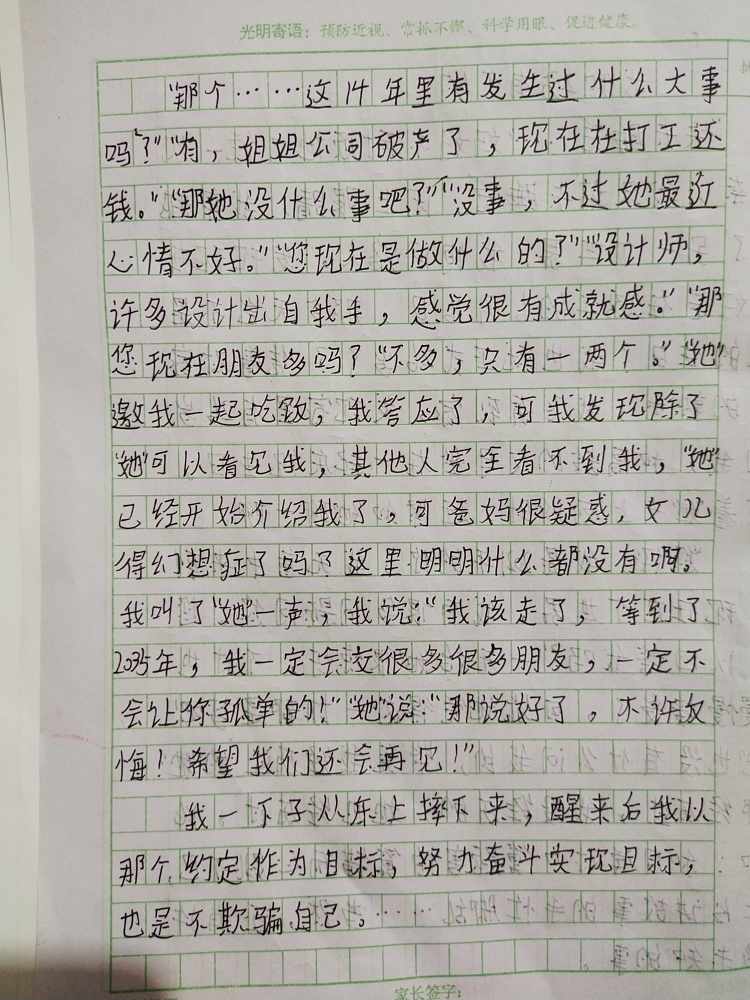 光明寄语：预防近视、常抓不懈、科学用眼、促进健康。
“那个……这14年里有发生过什么大事
吗？”“有，姐姐公司破产了，现在在打工还
钱。”“那她没什么事吧？”“没事，不过她最近
心情不好。”“您现在是做什么的？”“设计师，
许多设计出自我手，感觉很有成就感。”“那
您现在朋友多吗？“不多，只有一两个。”“她”
邀我一起吃饭，我答应了，可我发现除了
“她”可以看见我，其他人完全看不到我，“她”
已经开始介绍我了，可爸妈很疑惑，女儿
得幻想症了吗？这里明明什么都没有啊。
我叫了“她”一声，我说：“我该走了，等到了
2035年，我一定会交很多很多朋友，一定不
会让你孤单的！”“她”说：“那说好了，不许反
悔！希望我们还会再见！”
我一下子从床上摔下来，醒来后我以
那个约定作为目标，努力奋斗实现目标，
也是不欺骗自己。……
家长签字：